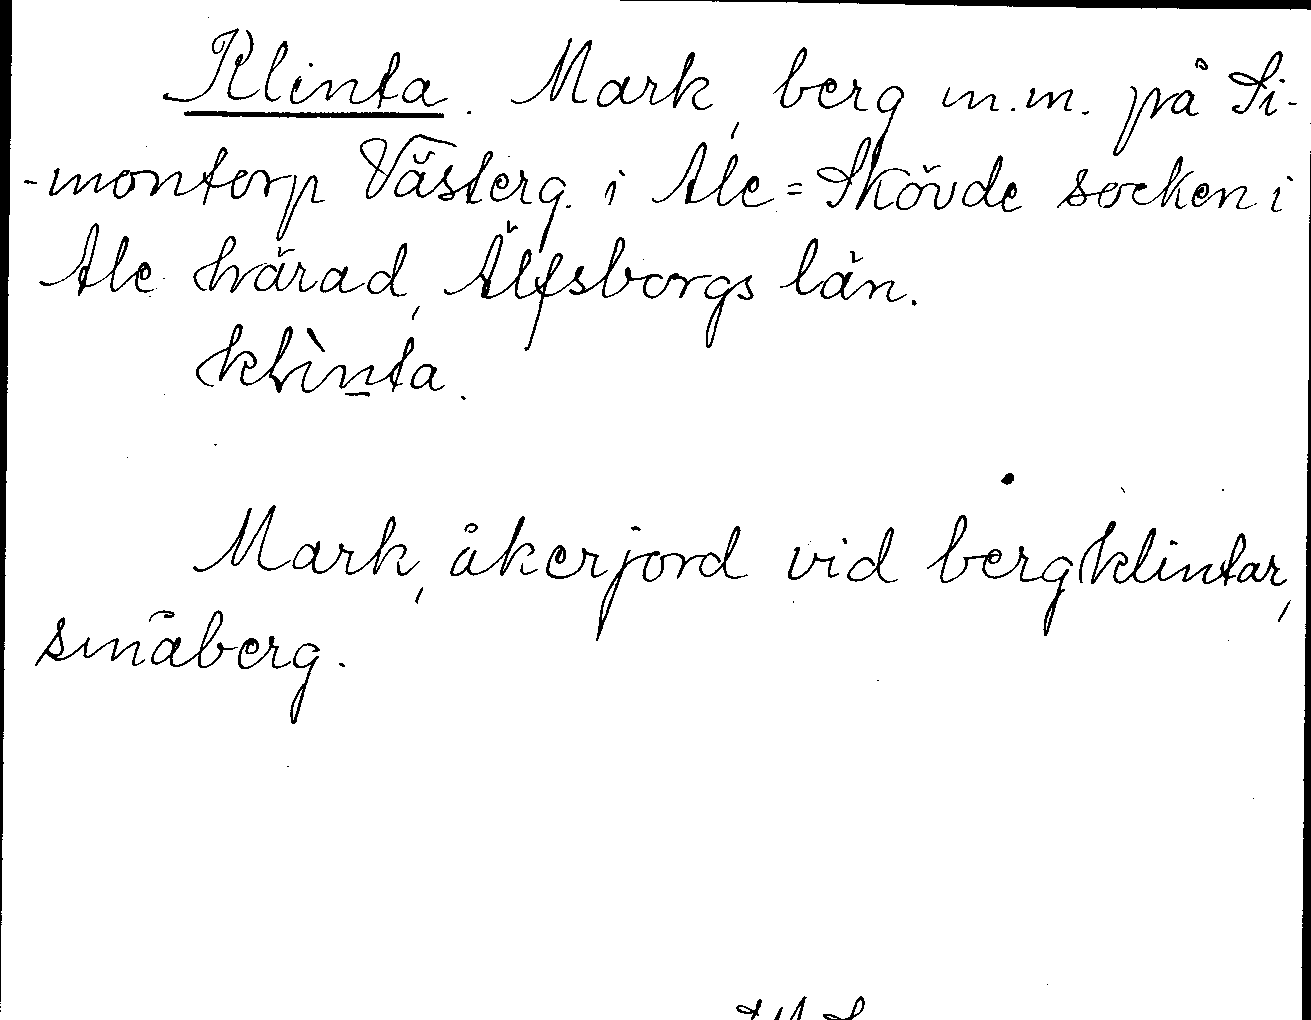 Klinta. Mark, berg m.m. på Si-
-montorp Västerg. i Ale=Skövde socken i
Ale härad, Älfsborgs län.
klìnta.
Mark, åkerjord vid bergklintar,
småberg.